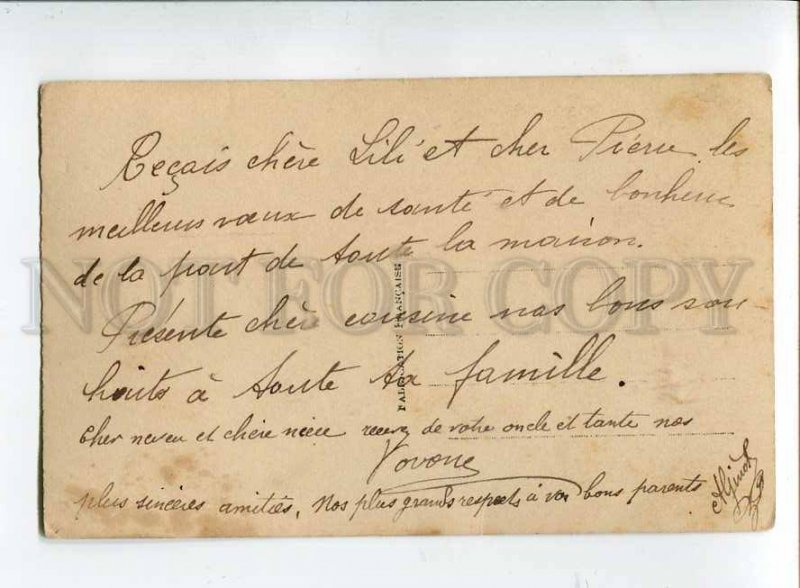 Reçois chère Lili et cher Pierre les
meilleurs vœux de santé et de bonheur
de la part de toute la maison.
Présente chère cousine nos bons sou
haits à toute ta famille.
Cher neveu et chère nièce recevez de votre oncle et tante nos
Yvonne
plus sincères amitiés, Nos plus grands respects à vos bons parents
FABRICATION FRANÇAISE
NOT FOR COPY